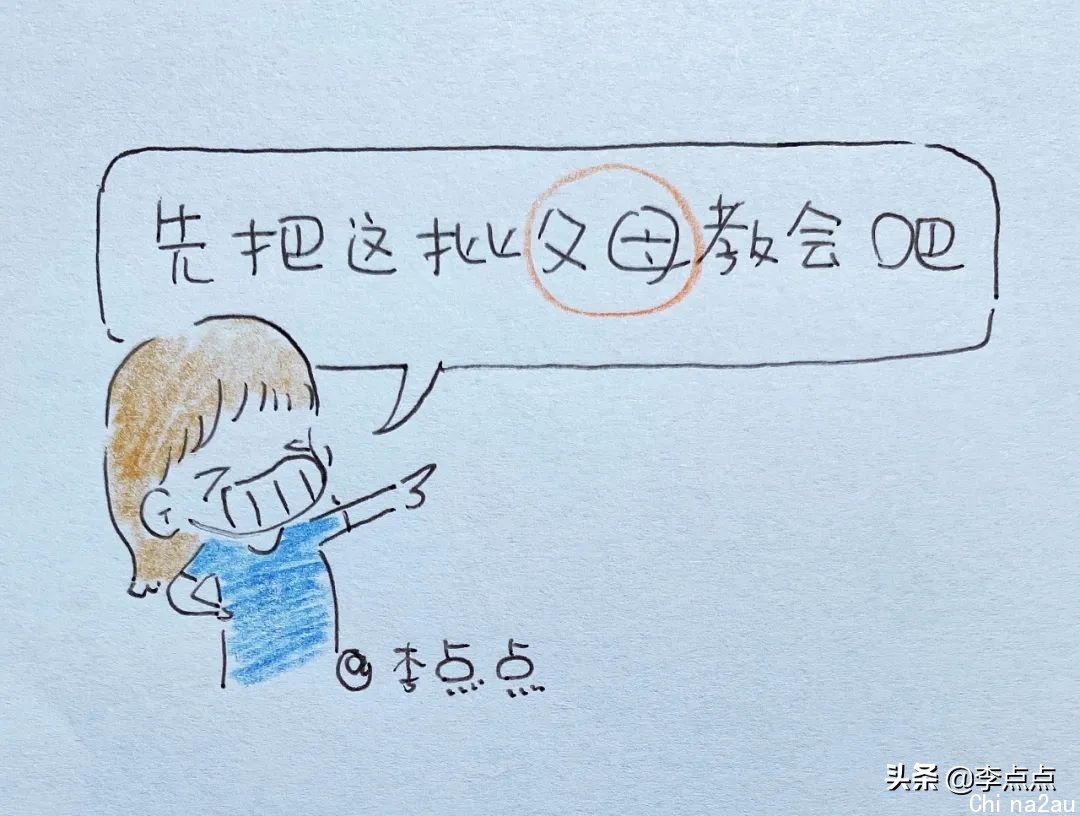 先把这批父母教会吧
@李点点
头条 @李点点
Chi na2au